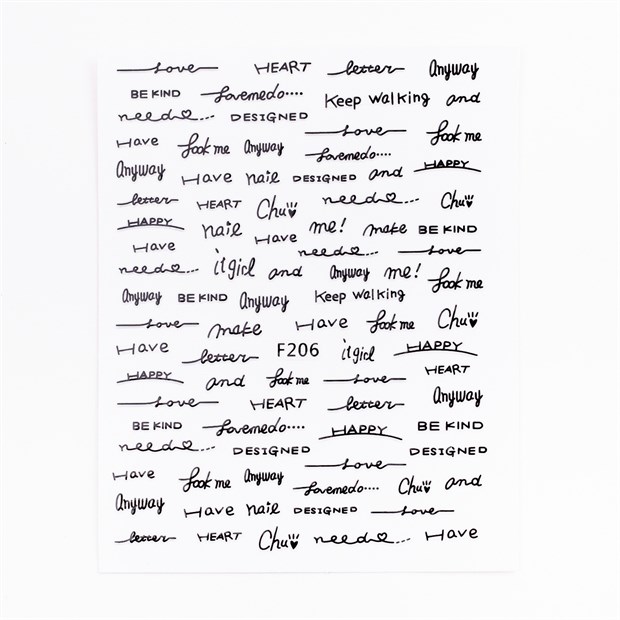 love HEART letter Anyway
BE KIND lovemedo.... Keep walking and
need... DESIGNED love look me
Have look me Anyway lovemedo.... HAPPY
Anyway Have nail DESIGNED and
letter HEART Chu need... Chu
HAPPY nail Have me! make BE KIND
Have need... love
need... itgirl and Anyway me! look me
Anyway BE KIND Anyway Keep walking
love make Have look me Chu
Have letter F206 itgirl HAPPY
HAPPY and look me love HEART
love HEART letter Anyway
BE KIND lovemedo.... HAPPY BE KIND
need... DESIGNED love DESIGNED
Have look me Anyway lovemedo.... Chu and
Anyway Have nail DESIGNED love
letter HEART Chu need... Have